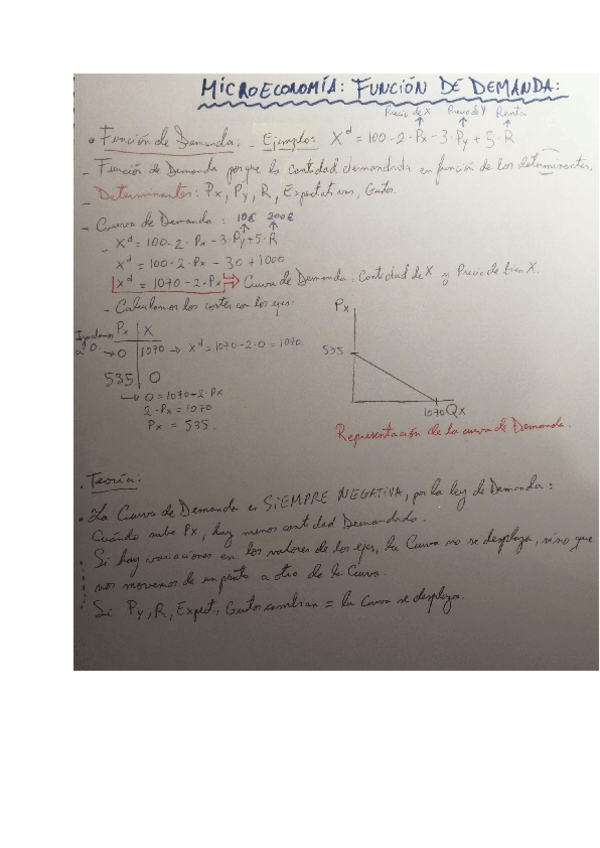 MICROECONOMÍA: FUNCIÓN DE DEMANDA:
Precio de X Precio de Y Renta
• Función de Demanda: - Ejemplo: X^d = 100 - 2 · Px - 3 · Py + 5 · R
- Función de Demanda porque la cantidad demandada en función de los determinantes.
- Determinantes: Px, Py, R, Expectativas, Gustos.
- Curva de Demanda: 10€ 200€
- X^d = 100 - 2 · Px - 3 · Py + 5 · R
X^d = 100 - 2 · Px - 30 + 1000
X^d = 1070 - 2 · Px → Curva de Demanda: Cantidad de X y Precio de bien X.
- Calculamos los cortes con los ejes:
Igualamos a 0.
Px | X
→ 0 | 1070 → X^d = 1070 - 2 · 0 = 1070.
535 | 0
→ 0 = 1070 - 2 · Px
2 · Px = 1070
Px = 535.
Px
535
1070 Qx
Representación de la curva de Demanda.
• Teoría:
• La Curva de Demanda es SIEMPRE NEGATIVA, por la ley de Demanda:
Cuándo sube Px, hay menos cantidad Demandada.
Si hay variaciones en los valores de los ejes, la Curva no se desplaza, sino que
nos movemos de un punto a otro de la Curva.
Si Py, R, Expect, Gustos cambian = la Curva se desplaza.